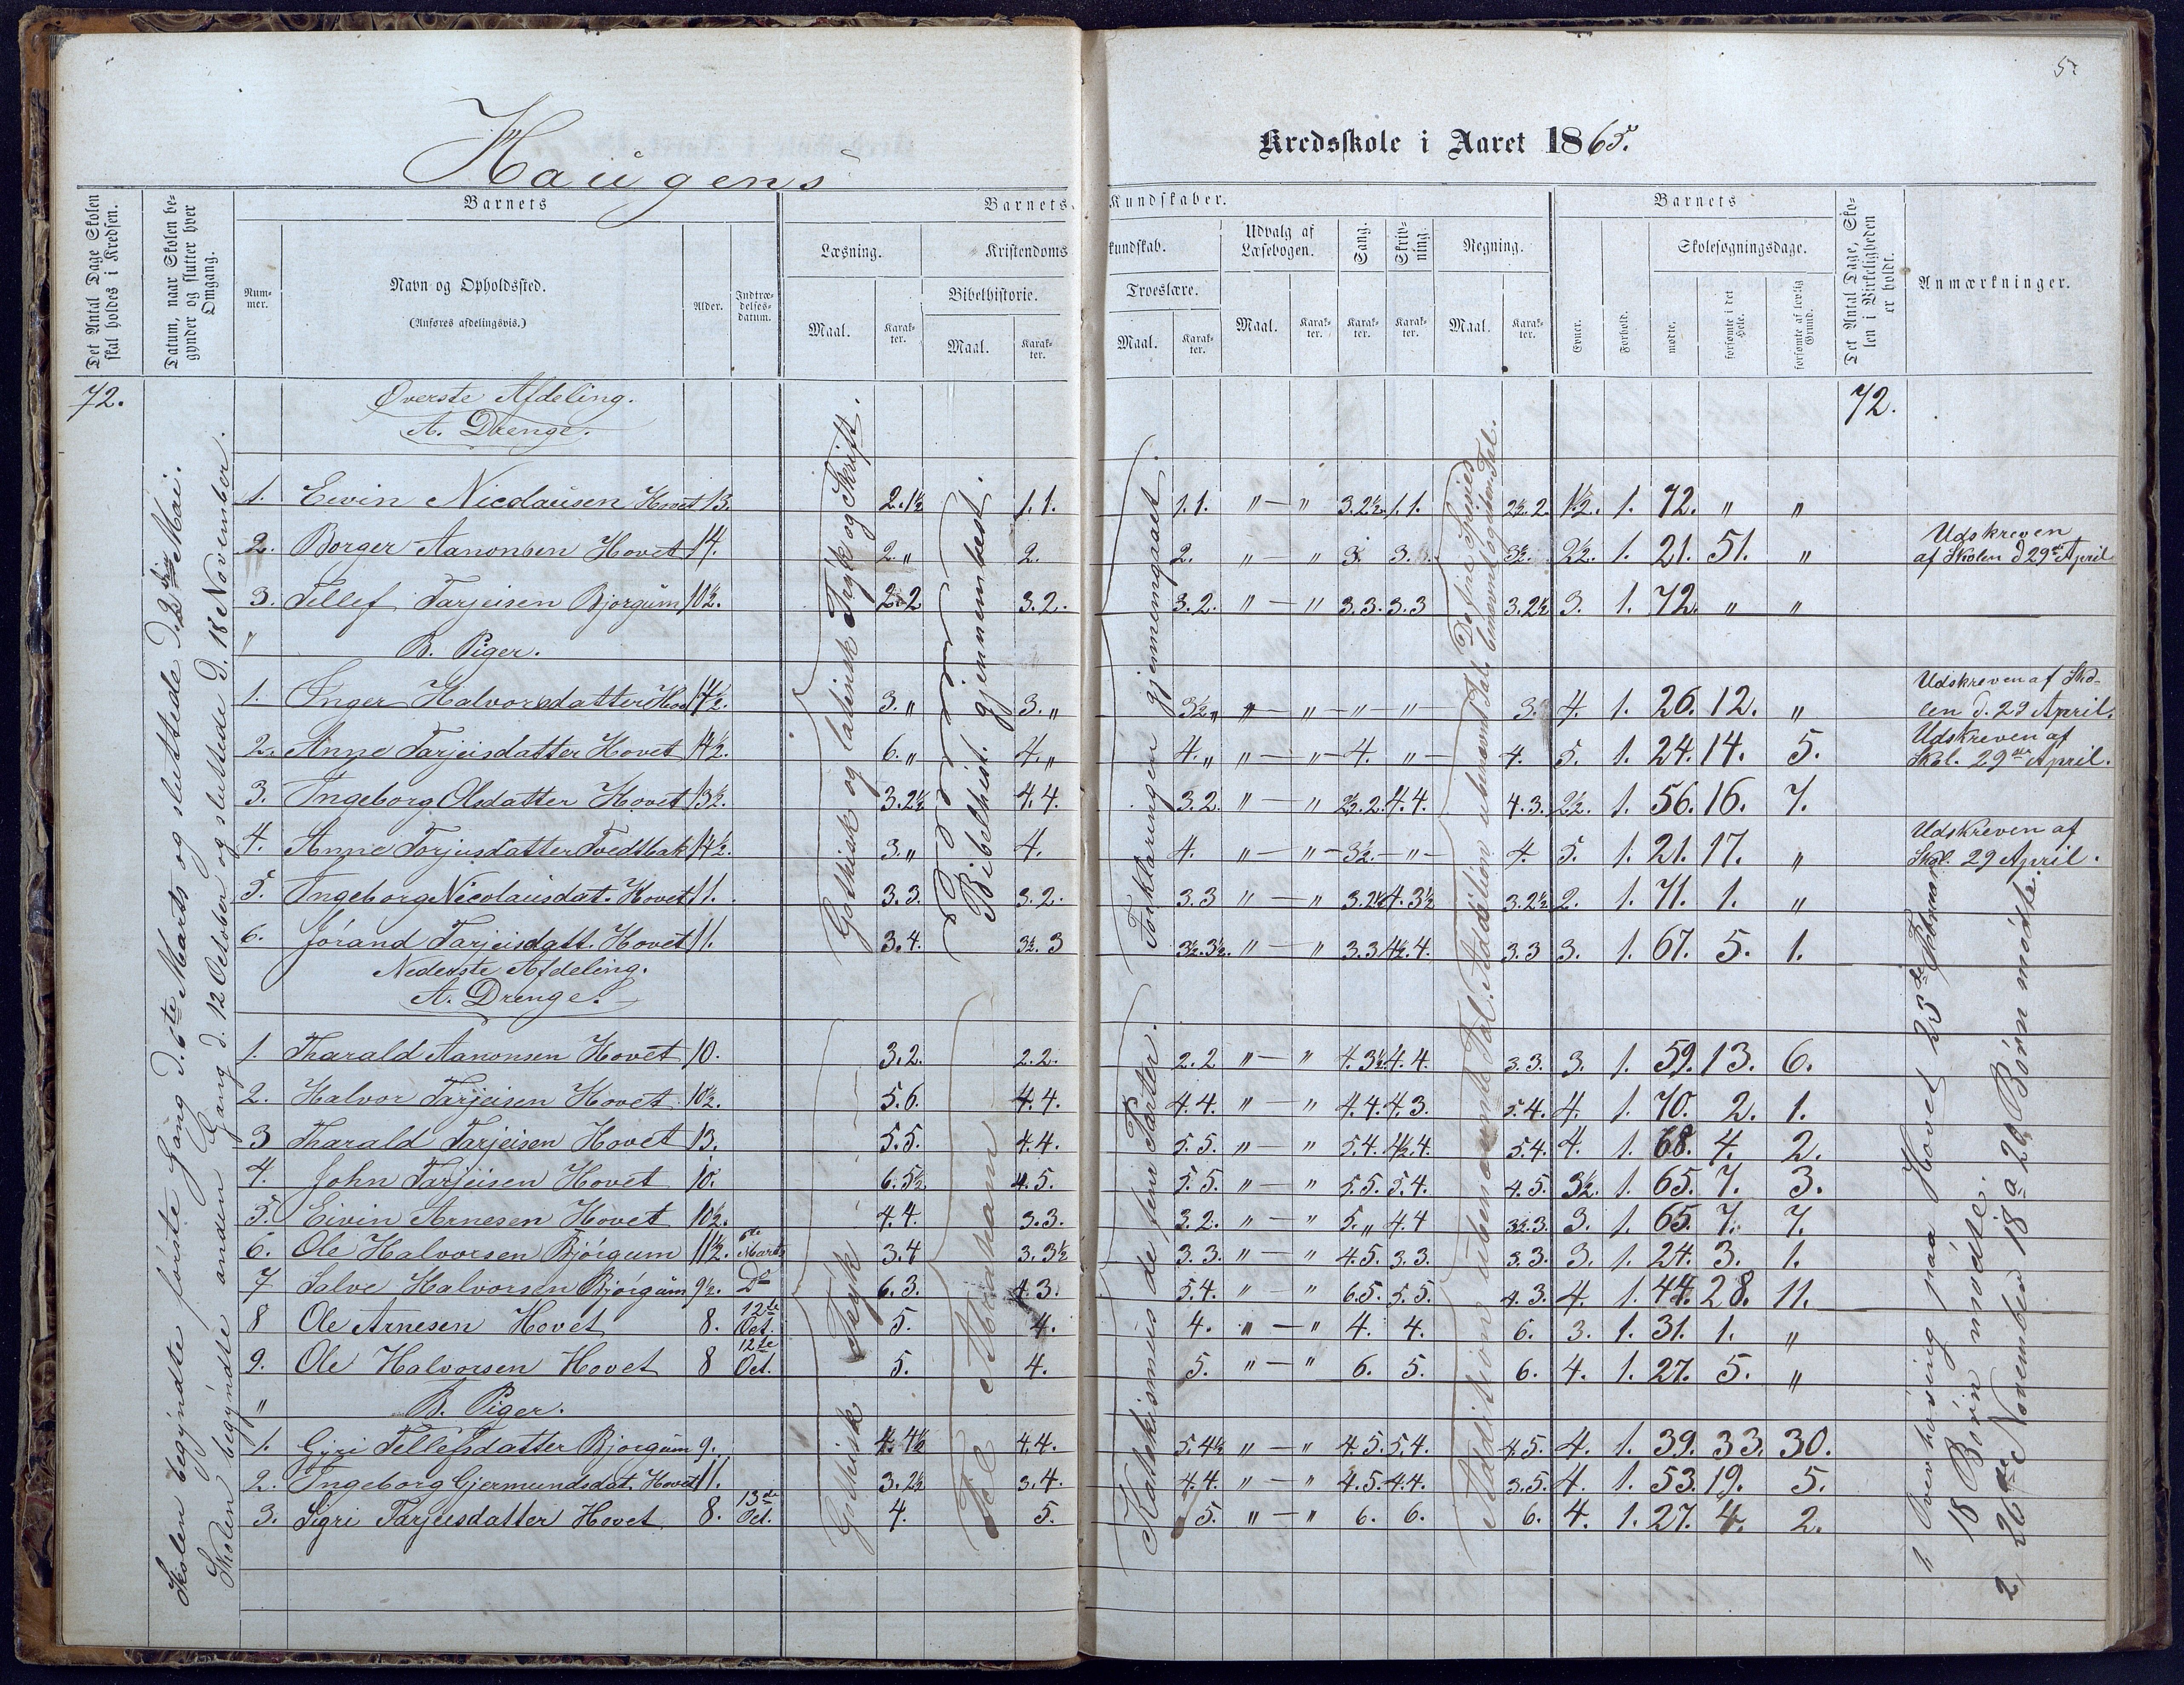 5.
Haugens Kredsskole i Aaret 1865.
Det Antal Dage Skolen skal holdes i Kredsen.
Datum, naar Skolen begynder og slutter hver Omgang.
Barnets
Barnets Kundskaber.
Barnets
Det Antal Dage, Skolen i Virkeligheden er holdt.
Anmærkninger.
Nummer.
Navn og Opholdssted.
(Anføres afdelingsvis.)
Alder.
Indtrædelsesdatum.
Læsning.
Kristendomskundskab.
Udvalg af Læsebogen.
Sang.
Skrivning.
Regning.
Evner.
Forhold.
Skolesøgningsdage.
Bibelhistorie.
Troeslære.
Maal.
Karakter.
Maal.
Karakter.
Maal.
Karakter.
Maal.
Karakter.
Karakter.
Karakter.
Maal.
Karakter.
mødte.
forsømte i det Hele.
forsømte af lovlig Grund.
72.
Øverste Afdeling.
72.
A. Drenge.
1. Eivin Nicolausen Hovet 13. 2.1½ 1.1. 1.1. " — " 3.2½ 1.1. 2½.2. 1½. 1. 72. " "
2. Borger Aanonsen Hovet 14. 2." 2. 2. " — " 3. 3. 3½. 2½. 1. 21. 51. " Udskreven af Skolen d 29de April
3. Tellef Tarjeisen Bjorgum 10½. 2.2 3.2. 3.2. " — " 3.3. 3.3 3.2½ 3. 1. 72. " "
" B. Piger.
1. Inger Halvorsdatter Hov 14½. 3." 3." 3½" " — " — " — " — 3. 4. 1. 26. 12. " Udskreven af Skolen d. 29 April.
2. Anne Tarjeisdatter Hovet 14½. 6." 4." 4." " — " — 4. " — 4. 5. 1. 24. 14. 5. Udskreven af Skol. 29de April.
3. Ingeborg Olsdatter Hovet 13½. 3.2½ 4.4. 3.2. " — " 2½.2. 4.4. 4.3. 2½. 1. 56. 16. 7.
4. Anne Torjusdatter Tvedtbak 14½. 3." 4. 4. " — " — 3½. — " — 4. 5. 1. 21. 17. " Udskreven af Skol. 29 April.
5. Ingeborg Nicolaisdat. Hovet 11. 3.3. 3.2. 3.3 " — " 3.2½ 4.3½ 3.2½ 2. 1. 71. 1. "
6. Jórand Tarjeisdatt. Hovet 11. 3.4. 3½.3 3½.3½. " — " 3.3 4½.4. 3.3 3. 1. 67. 5. 1.
Nederste Afdeling.
A. Drenge.
1. Tharald Aanonsen Hovet 10. 3.2. 2.2. 2.2 " — " 4.3½ 4.4. 3.3. 3. 1. 59. 13. 6.
2. Halvor Tarjeisen Hovet 10½. 5.6. 4.4. 4.4. " — " 4.4. 4.3. 5.4. 4. 1. 70. 2. 1.
3 Tharald Tarjeisen Hovet 13. 5.5. 4.4. 5.5. " — " 5.4. 4½.4. 5.4. 4. 1. 68. 4. 2.
4. John Tarjeisen Hovet 10. 6.5½ 4.5. 5.5. " — " 5.5. 5.4. 4.5. 3½. 1. 65. 7. 3.
5. Eivin Arnesen Hovet 10½. 4.4. 3.3. 3.2. " — " 5." 4.4 3½.3. 3. 1. 65. 7. 7.
6. Ole Halvorsen Bjórgum 11½. 6te Marts 3.4 3.3½ 3.3. " — " 4.5. 3.3. 3.3. 3. 1. 24. 3. 1.
7 Salve Halvorsen Bjórgum 9½. Do 6.3. 4.3. 5.4. " — " 6.5. 5.5. 4.3. 4. 1. 44. 28. 11.
8 Ole Arnesen Hovet 8. 12te Oct. 5. 4. 4. " — " 4. 4. 6. 3. 1. 31. 1. "
9. Ole Halvorsen Hovet 8 12te Oct. 5. 4. 5. " — " 6. 5. 6. 4. 1. 27. 5. "
" B. Piger.
1. Gjri Tellefsdatter Bjorgum 9. 4.4½ 4.4. 5.4½ " — " 4.5. 5.4. 4.5. 4. 1. 39. 33. 30.
2. Ingeborg Gjermundsdat. Hovet 11. 3.2½ 3.4. 4.4. " — " 4.5. 4.4. 3.5. 4. 1. 53. 19. 5.
3. Sigri Tarjeisdatter Hovet 8. 13de Oct. 4. 5. 5. " — " 6. 6. 6. 4. 1. 27. 4. 2.
Skolen begyndte fórste Gang d. 6te Marts og sluttede d. 2den Mai.
Skolen begyndte anden Gang d. 12 October og sluttede d. 18 November.
Gothisk og latinsk Tryk og Skrift.
Bibelhist. gjennemlæst.
Forklaringen gjennemgaaet.
Addition ubenævnt Tal.
Gothisk Tryk
Til Abraham
Katekismus de fem Parter.
Addition ubenævnte Tal.
1, Overhøring paa Hovet 23de Februar
18 Børn mødte.
2, 20de November 18 a 20 Børn mødte.